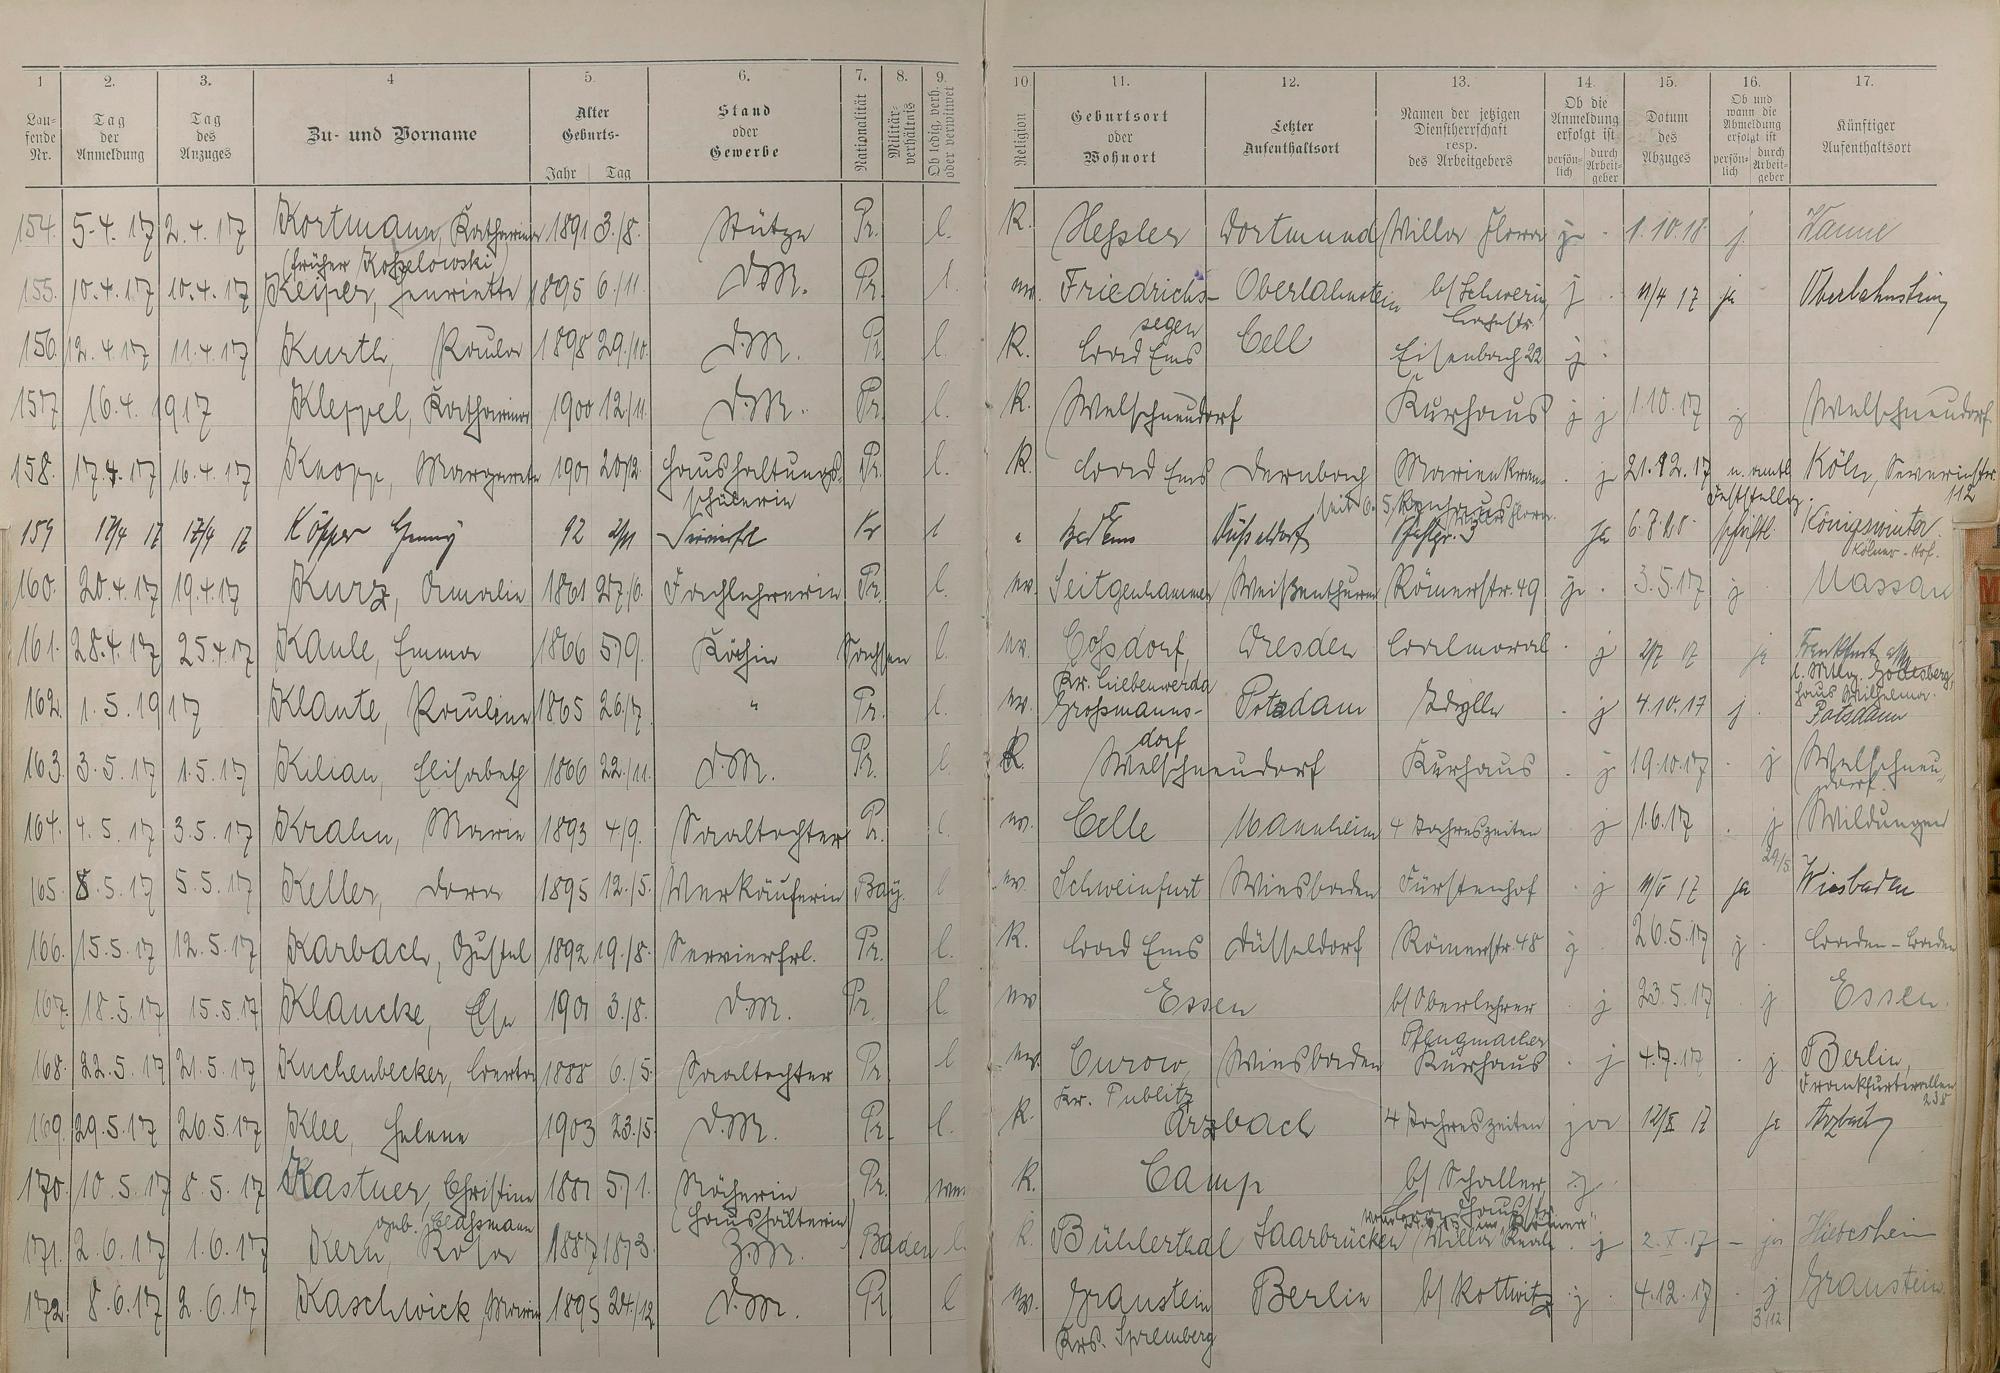 1 2. 3. 4 5. 6. 7. 8. 9. 10. 11. 12. 13. 14. 15. 16. 17.
Lau-
fende
Nr.
Tag
der
Anmeldung
Tag
des
Anzuges
Zu- und Vorname
Alter
Geburts-
Jahr Tag
Stand
oder
Gewerbe
Nationalität
Militär-
verhältnis
Ob ledig, verh.
oder verwitwet
Religion
Geburtsort
oder
Wohnort
Letzter
Aufenthaltsort
Namen der jetzigen
Dienstherrschaft
resp.
des Arbeitgebers
Ob die
Anmeldung
erfolgt ist
persön-
lich
durch
Arbeit-
geber
Datum
des
Abzuges
Ob und
wann die
Abmeldung
erfolgt ist
persön-
lich
durch
Arbeit-
geber
Künftiger
Aufenthaltsort
154. 5.4.17 2.4.17 Kortmann, Katharina 1891 3./8. Stütze Pr. l. K. Hessler Dortmund Villa Flora j. 1.10.18. j. Wanne
(früher Koszelowski)
155. 10.4.17 10.4.17 Keiper, Henriette 1895 6./11. D.M. Pr. l. ev. Friedrichs- Oberlahnstein b/ Schwerin, j 11/4 17 ja Oberlahnstein
segen
156. 12.4.17 11.4.17 Kurth, Paula 1898 29./10. D.M. Pr. l. K. Bad Ems Cell Eisenbach 22 j.
157 16.4.1917 Kleppel, Katharina 1900 12./11. D.M. Pr. l. K. Welschneudorf Kurhaus j j 1.10.17 j Welschneudorf
158. 17.4.17 16.4.17 Knopp, Margarete 1901 Haushaltungs- Pr. l. K. Bad Ems Dernbach j 21.12.17 n. amtl. Köln, Severinstr.
schülerin Feststellg. 112
159 17/4 17 17/4 17 Köpper Jenny 92 Servierfrl Pr l " Bad Ems Düsseldorf ja schriftl. Königswinter
Kölner-Hof.
160. 20.4.17 19.4.17 Kurz, Amalie 1861 27./6. Fachlehrerin Pr. l. ev. Seitgenhammer Weißenthurm Römerstr. 49 j. 3.5.17 j Nassau
161. 28.4.17 25.4.17 Kaule, Emma 1866 5./9. Köchin Sachsen l. ev. Cossdorf, Dresden Balmoral j 2/7 17 ja Frankfurt a/M
Kr. Liebenwerda l. Mtlg. Godesberg,
Haus Wilhelma.
162. 1.5.1917 Klante, Pauline 1865 26./7. " Pr. l. ev. Grossmanns- Potsdam Idylle j 4.10.17 j. Potsdam
dorf
163. 3.5.17 1.5.17 Kilian, Elisabeth 1866 22./11. D.M. Pr. l. K. Welschneudorf Kurhaus j 19.10.17 j Welschneu-
dorf.
164. 4.5.17 3.5.17 Krahn, Marie 1893 4./9. Saaltochter Pr. l. ev. Celle Mannheim 4 Jahreszeiten j 1.6.17 j Wildungen
29/5.
165. 8.5.17 5.5.17 Keller, Dora 1895 12./5. Verkäuferin Bay. l ev. Schweinfurt Wiesbaden Fürstenhof j 11/5 17 ja Wiesbaden
166. 15.5.17 12.5.17 Karbach, Gustel 1892 19./8. Servierfrl. Pr. l. K. Bad Ems Düsseldorf Römerstr. 48 j 26.5.17 j Baden-Baden
167. 18.5.17 15.5.17 Klancke, Else 1901 3./8. D.M. Pr. l ev Essen b/ Oberlehrer j 23.5.17 j Essen.
Pflugmacher
168. 22.5.17 21.5.17 Kuchenbecker, Berta 1888 6./5. Saaltochter Pr. l ev. Curow, Wiesbaden Kurhaus j 4.7.17 j. Berlin,
Kr. Publitz Frankfurterallee
238
169. 29.5.17 26.5.17 Klee, Helene 1903 23./5. D.M. Pr. l. K. Arzbach 4 Jahreszeiten ja 12/X 17 ja Arzbach
170. 10.5.17 8.5.17 Kastner, Christine 1881 5./1. Näherin Pr. verw. K. Camp b/ Schaller, j.
geb. (Haushälterin)
171. 2.6.17 1.6.17 Kern, Rosa 1887 18./3. Z.M. Baden l. K. Bühlerthal Saarbrücken Villa j 2.X.17 – ja
172. 8.6.17 2.6.17 Kaschwick, Marie 1895 24./12. D.M. Pr. l ev. Graustein Berlin b/ Kottwitz j. 4.12.17 j Graustein
Krs. Spremberg 3/12.